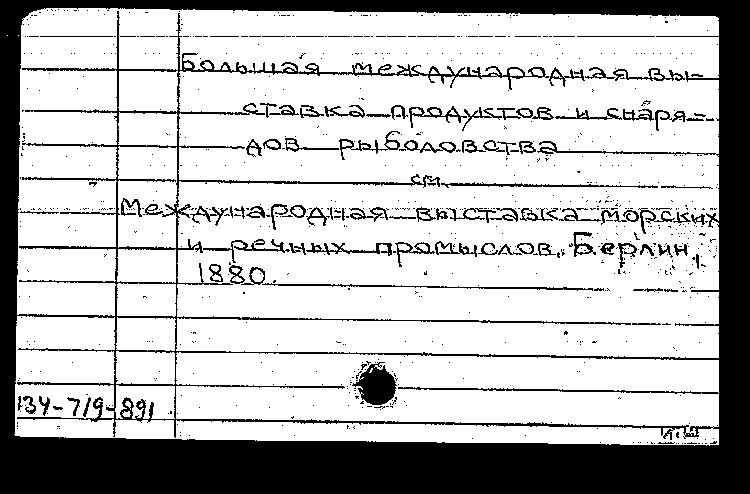 Большая международная вы-
ставка продуктов и снаря-
дов рыболовства
см.
Международная выставка морских
и речных промыслов. Берлин,
1880.
134-719-891